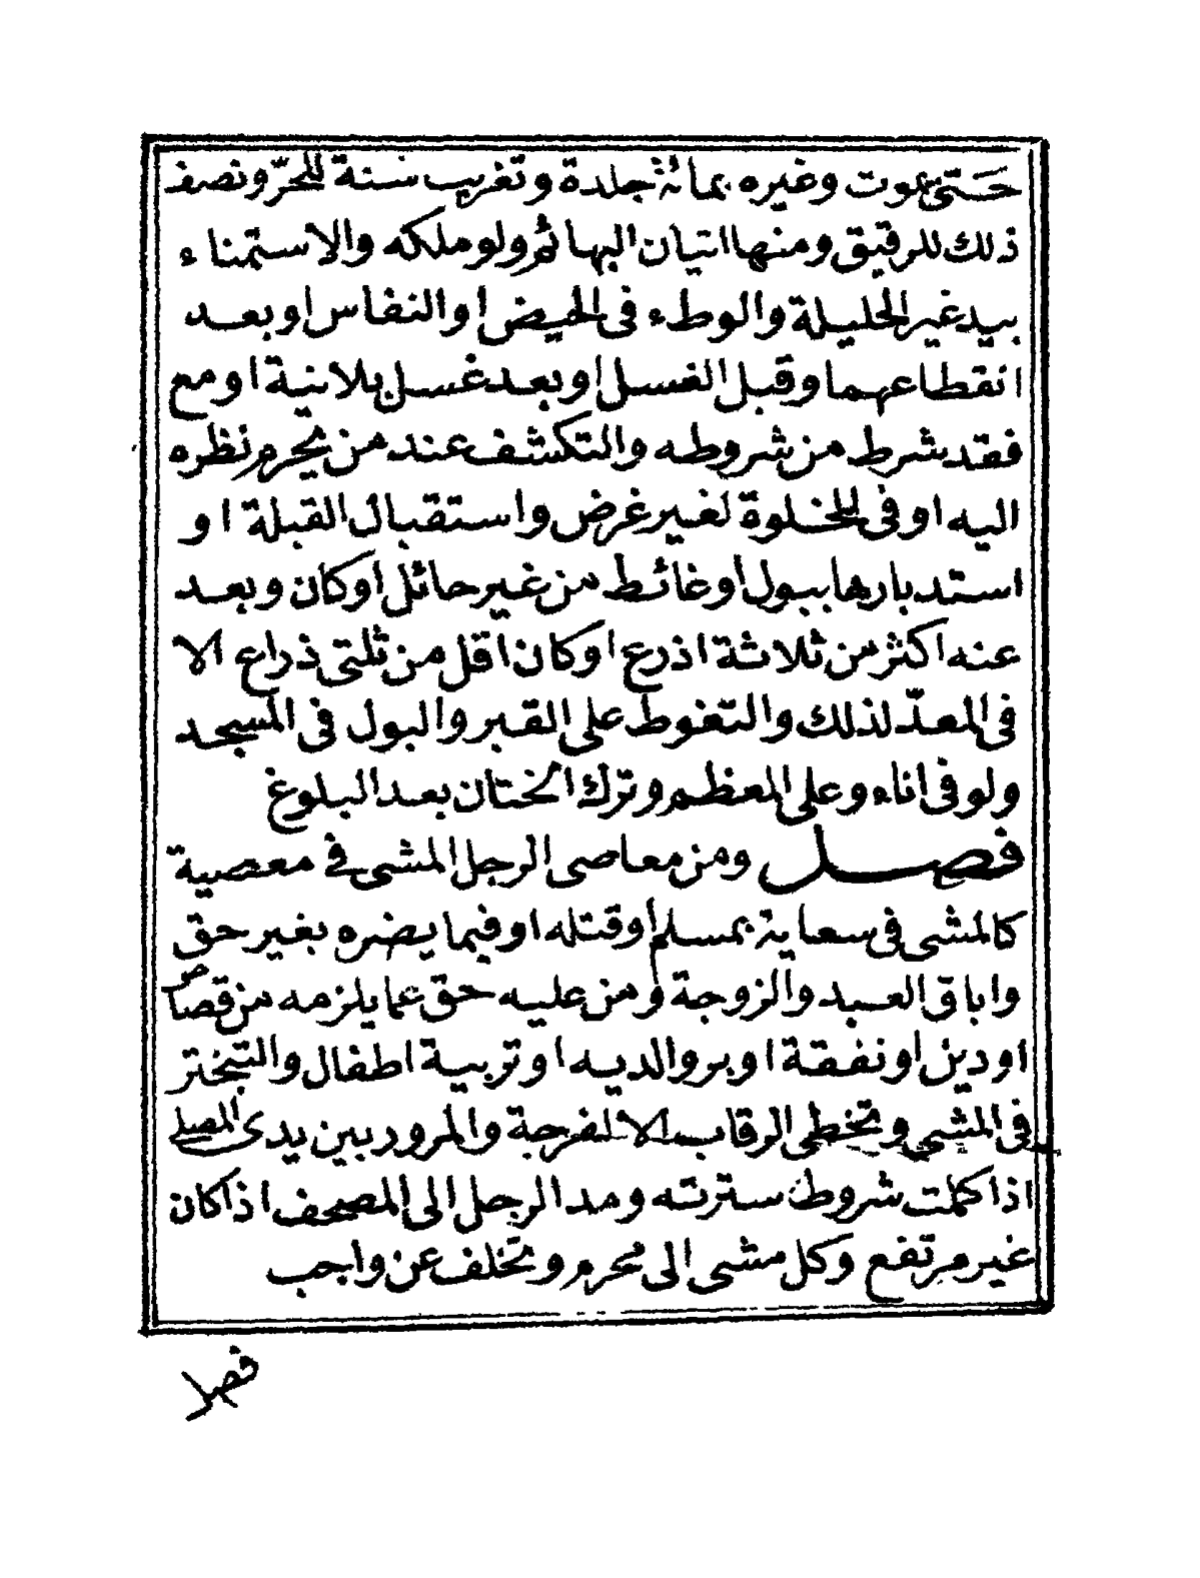 حَتى يموت وغيره بمائة جلدة وتغريب سنة للحرّ ونصف
ذلك للرقيق ومنها اتيان البهائم ولو ملكه والاستمناء
بيد غير الحليلة والوطء فى الحيض او النفاس او بعد
انقطاعهما وقبل الغسل او بعد غسل بلا نية او مع
فقد شرط من شروطه والتكشف عند من يحرم نظره
اليه او فى الخلوة لغير غرض واستقبال القبلة او
استدبارها ببول او غائط من غير حائل او كان وبعد
عنه اكثر من ثلاثة اذرع او كان اقل من ثلثى ذراع الا
فى المعدّ لذلك والتغوط على القبر والبول فى المسجد
ولو فى اناء وعلى المعظم وترك الختان بعد البلوغ
فصل ومن معاصى الرجل المشى فى معصية
كالمشى فى سعاية بمسلم او قتله او فيما يضره بغير حق
واباق العبد والزوجة ومن عليه حق عما يلزمه من قصاص
او دين او نفقة او بر والديه او تربية اطفال والتبختر
فى المشى وتخطى الرقاب الا لفرجة والمرور بين يدى المصلى
اذا كملت شروط سترته ومد الرجل الى المصحف اذا كان
غير مرتفع وكل مشى الى محرم وتخلف عن واجب
فصل